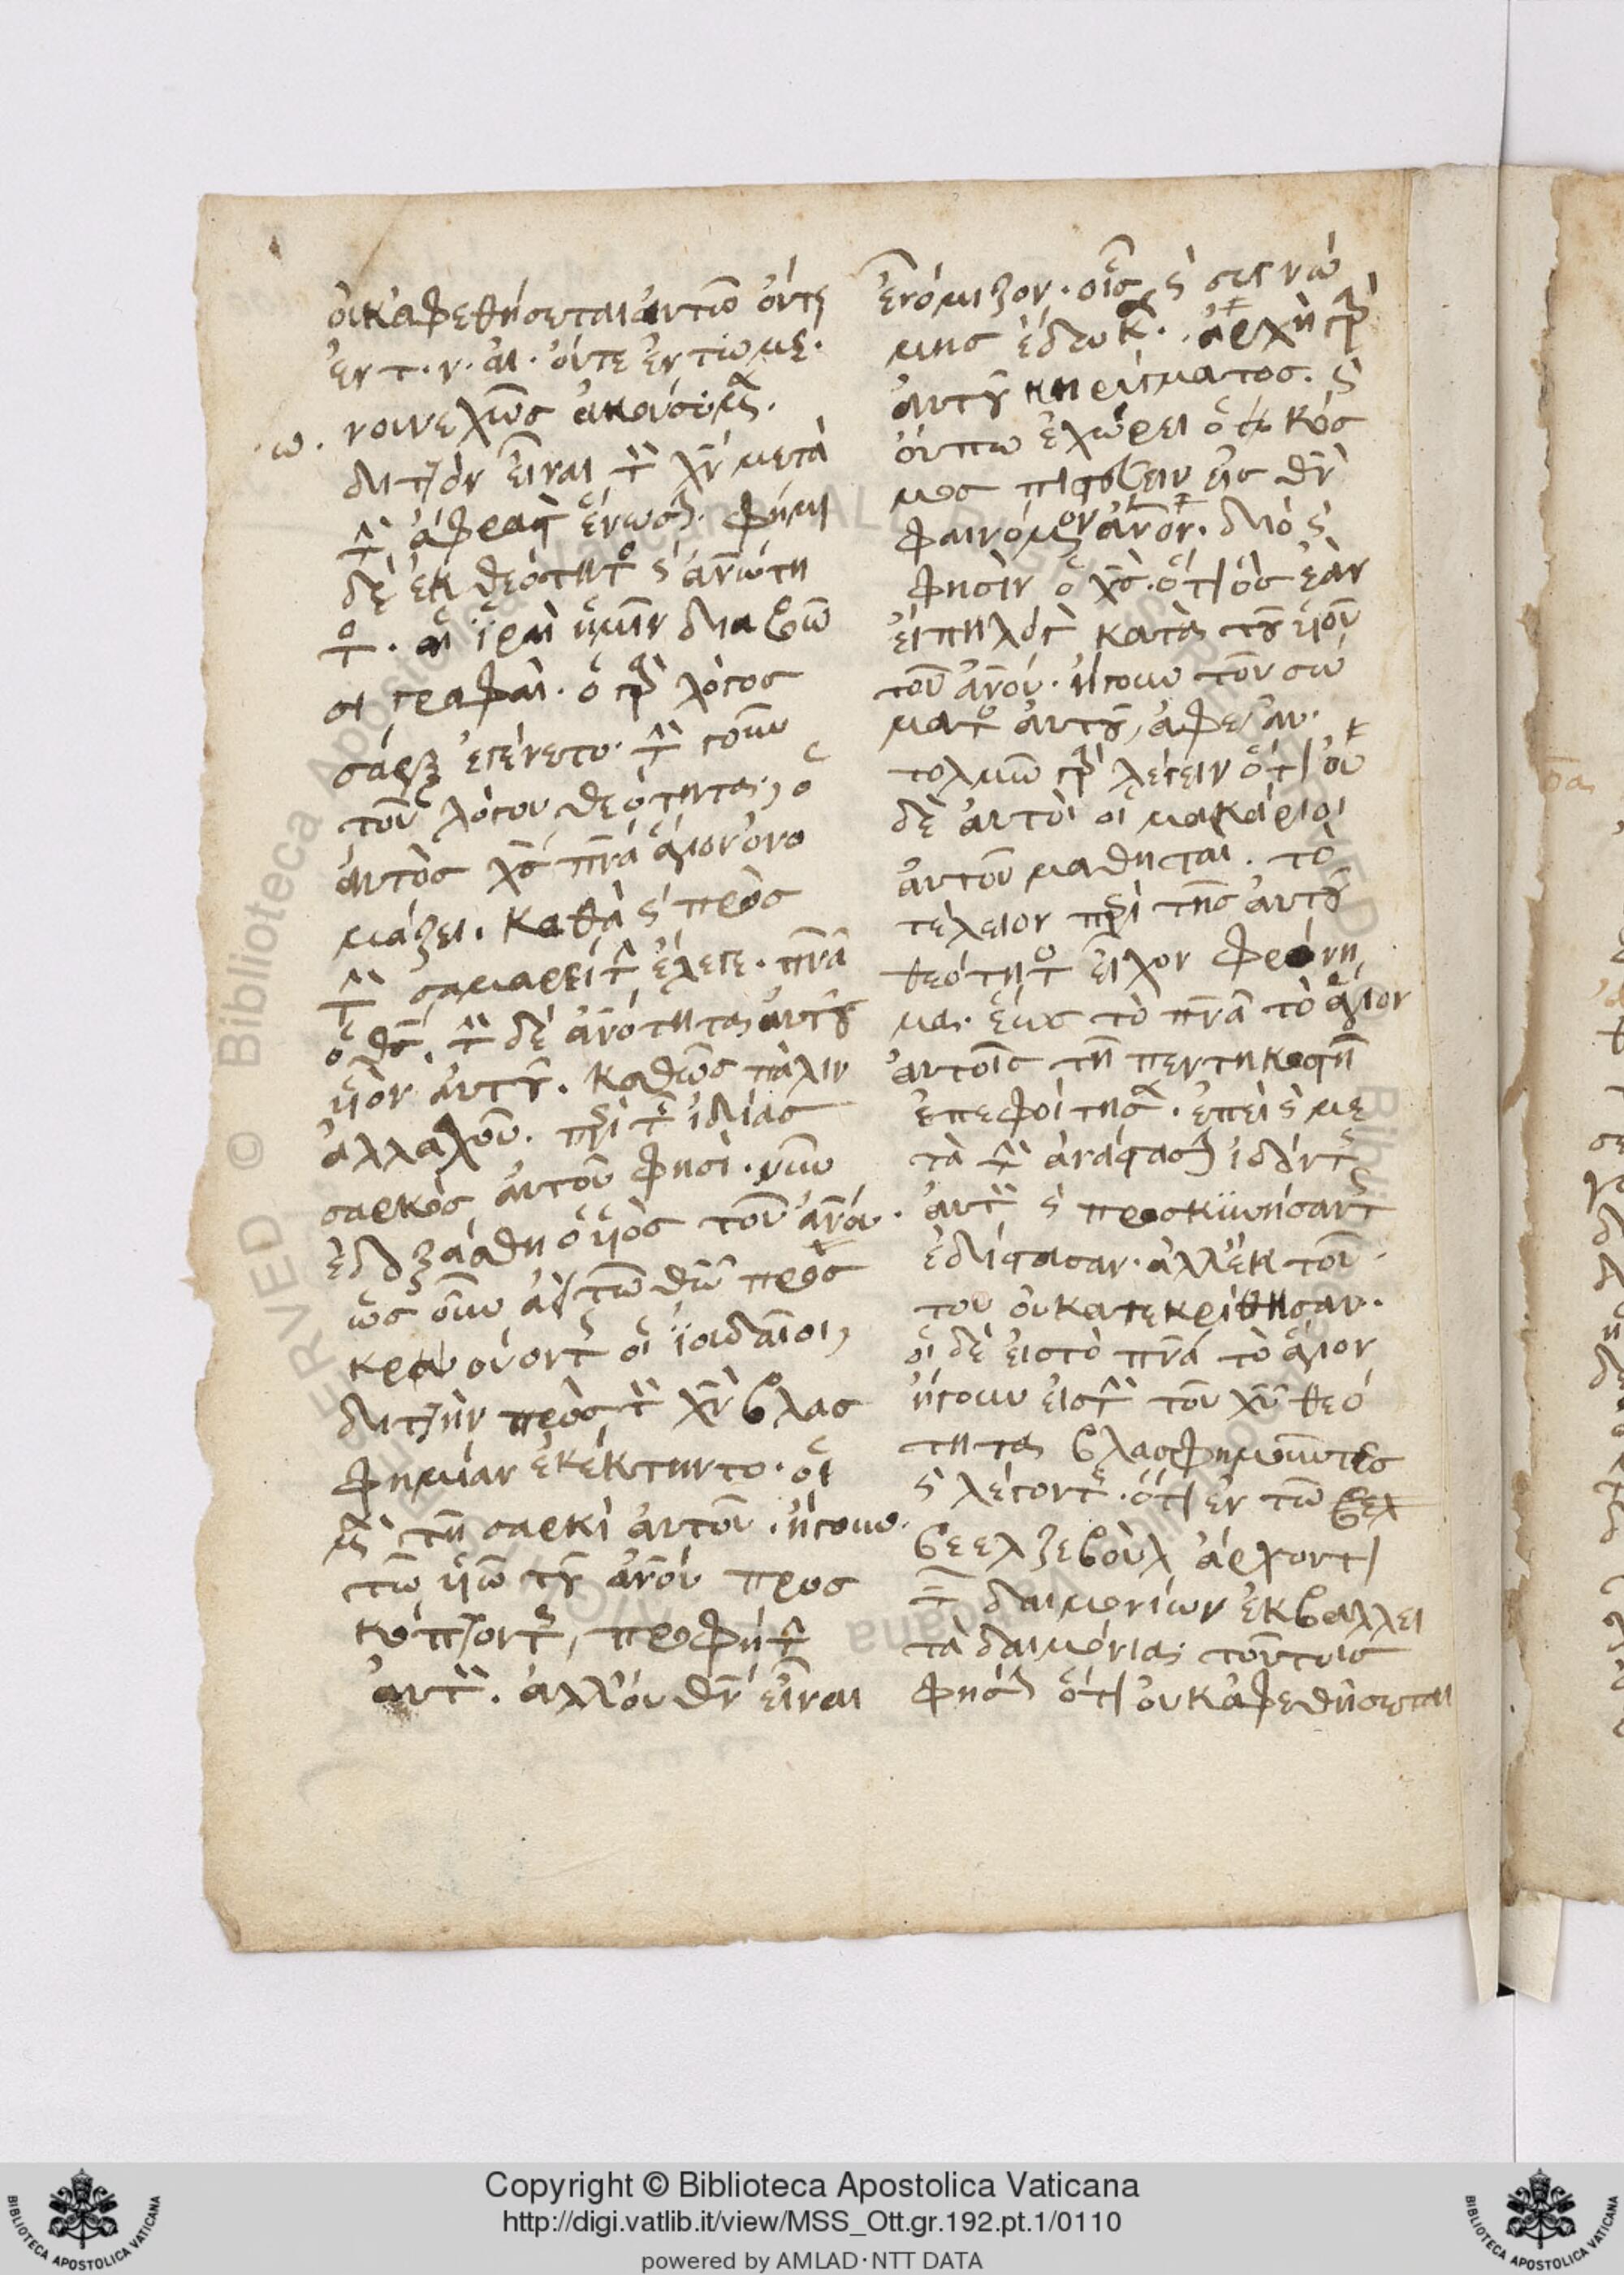 οὐκ ἀφεθήσεται αὐτῶ οὔτε
ἐν τ. ν. αι. οὔτε ἐν τῶ με.
νουνεχῶς ἀκούσωμ
.ω.
διττὸν εἶναι τ χν μετὰ
τ ἄφραστ ἕνωσ. φημὶ
δὲ ἐκ θεότητο κ ανωτη
το. αἱ ἱεραὶ ἡμῖν διαβοῶ
σι γραφαί. ὁ γρ λόγος
σὰρξ ἐγένετο. τ γοῦν
τοῦ λόγου θεότητα, ὁ
αὐτὸς χς πνα ἅγιον ὀνο
μάζει. καθὰ κ πρὸς
τ σαμαρεῖτ ἔλεγε. πνα
ὁ θς. τ δὲ ανότητα αὐτοῦ
υἱὸν ανου. καθὼς πάλιν
ἀλλαχοῦ. περὶ τ ἰδίας
σαρκὸς αὐτοῦ φησί. νῦν
ἐδοξάσθη ὁ υἱὸς τοῦ ανου.
ὡς οὖν αυτῶ θω προσ
κρούοντ οἱ ἰουδαῖοι,
διττὴν πρὸς τ χν βλασ
φημίαν ἐκέκτηντο. οἱ
μὲν τῆ σαρκὶ αὐτοῦ. ἤγουν
τῶ υἱῶ τοῦ ανου προσ
κόπτοντ, προφήτ
αὐτ. ἀλλ' οὐ θν εἶναι
ἐνόμιζον. οἷς κ συγνώ
μης ἔδωκ. ἀρχὴ γρ
αὐτοῦ κηρύγματος. κ
οὔπω ἐχώρει ὁ κόσ
μος πιστεύειν εἰς θν
φαινόμεν ανον. διὸ κ
φησὶν ὁ χς. ὅτι ὃς ἐὰν
εἴπη λόγ κατὰ τοῦ υἱοῦ
τοῦ ανου. ἤγουν τοῦ σώ
ματο αὐτοῦ, ἀφε αυ.
τολμῶ γρ λέγειν ὅτι οὐ
δὲ αὐτοὶ οἱ μακάριοι
αὐτοῦ μαθηται. τὸ
τέλειον περὶ τῆς αὐτοῦ
θεότητο εἶχον φρόνη
μα. ἕως τὸ πνα τὸ ἅγιον
αὐτοῖς τῆ πεντηκοστῆ
ἐπεφοίτησ. ἐπεὶ κ με
τὰ τ ἀνάστασιν ἰδόντ
αὐτ κ προσκυνήσαντ
ἐδίστασαν. ἀλλ' ἐκ τού
του οὐ κατεκρίθησαν.
οἱ δὲ εἰς τὸ πνα τὸ ἅγιον
ἤγουν εἰς τ τοῦ χυ θεό
τητα βλασφημοῦντες
κ λέγοντ. ὅτι ἐν τῶ βελ
βεελζεβοὺλ ἄρχοντι
τ δαιμονίων ἐκβάλλει
τὰ δαιμόνια, τούτοις
φησὶν ὅτι οὐκ ἀφεθήσεται
Copyright © Biblioteca Apostolica Vaticana
http://digi.vatlib.it/view/MSS_Ott.gr.192.pt.1/0110
powered by AMLAD·NTT DATA